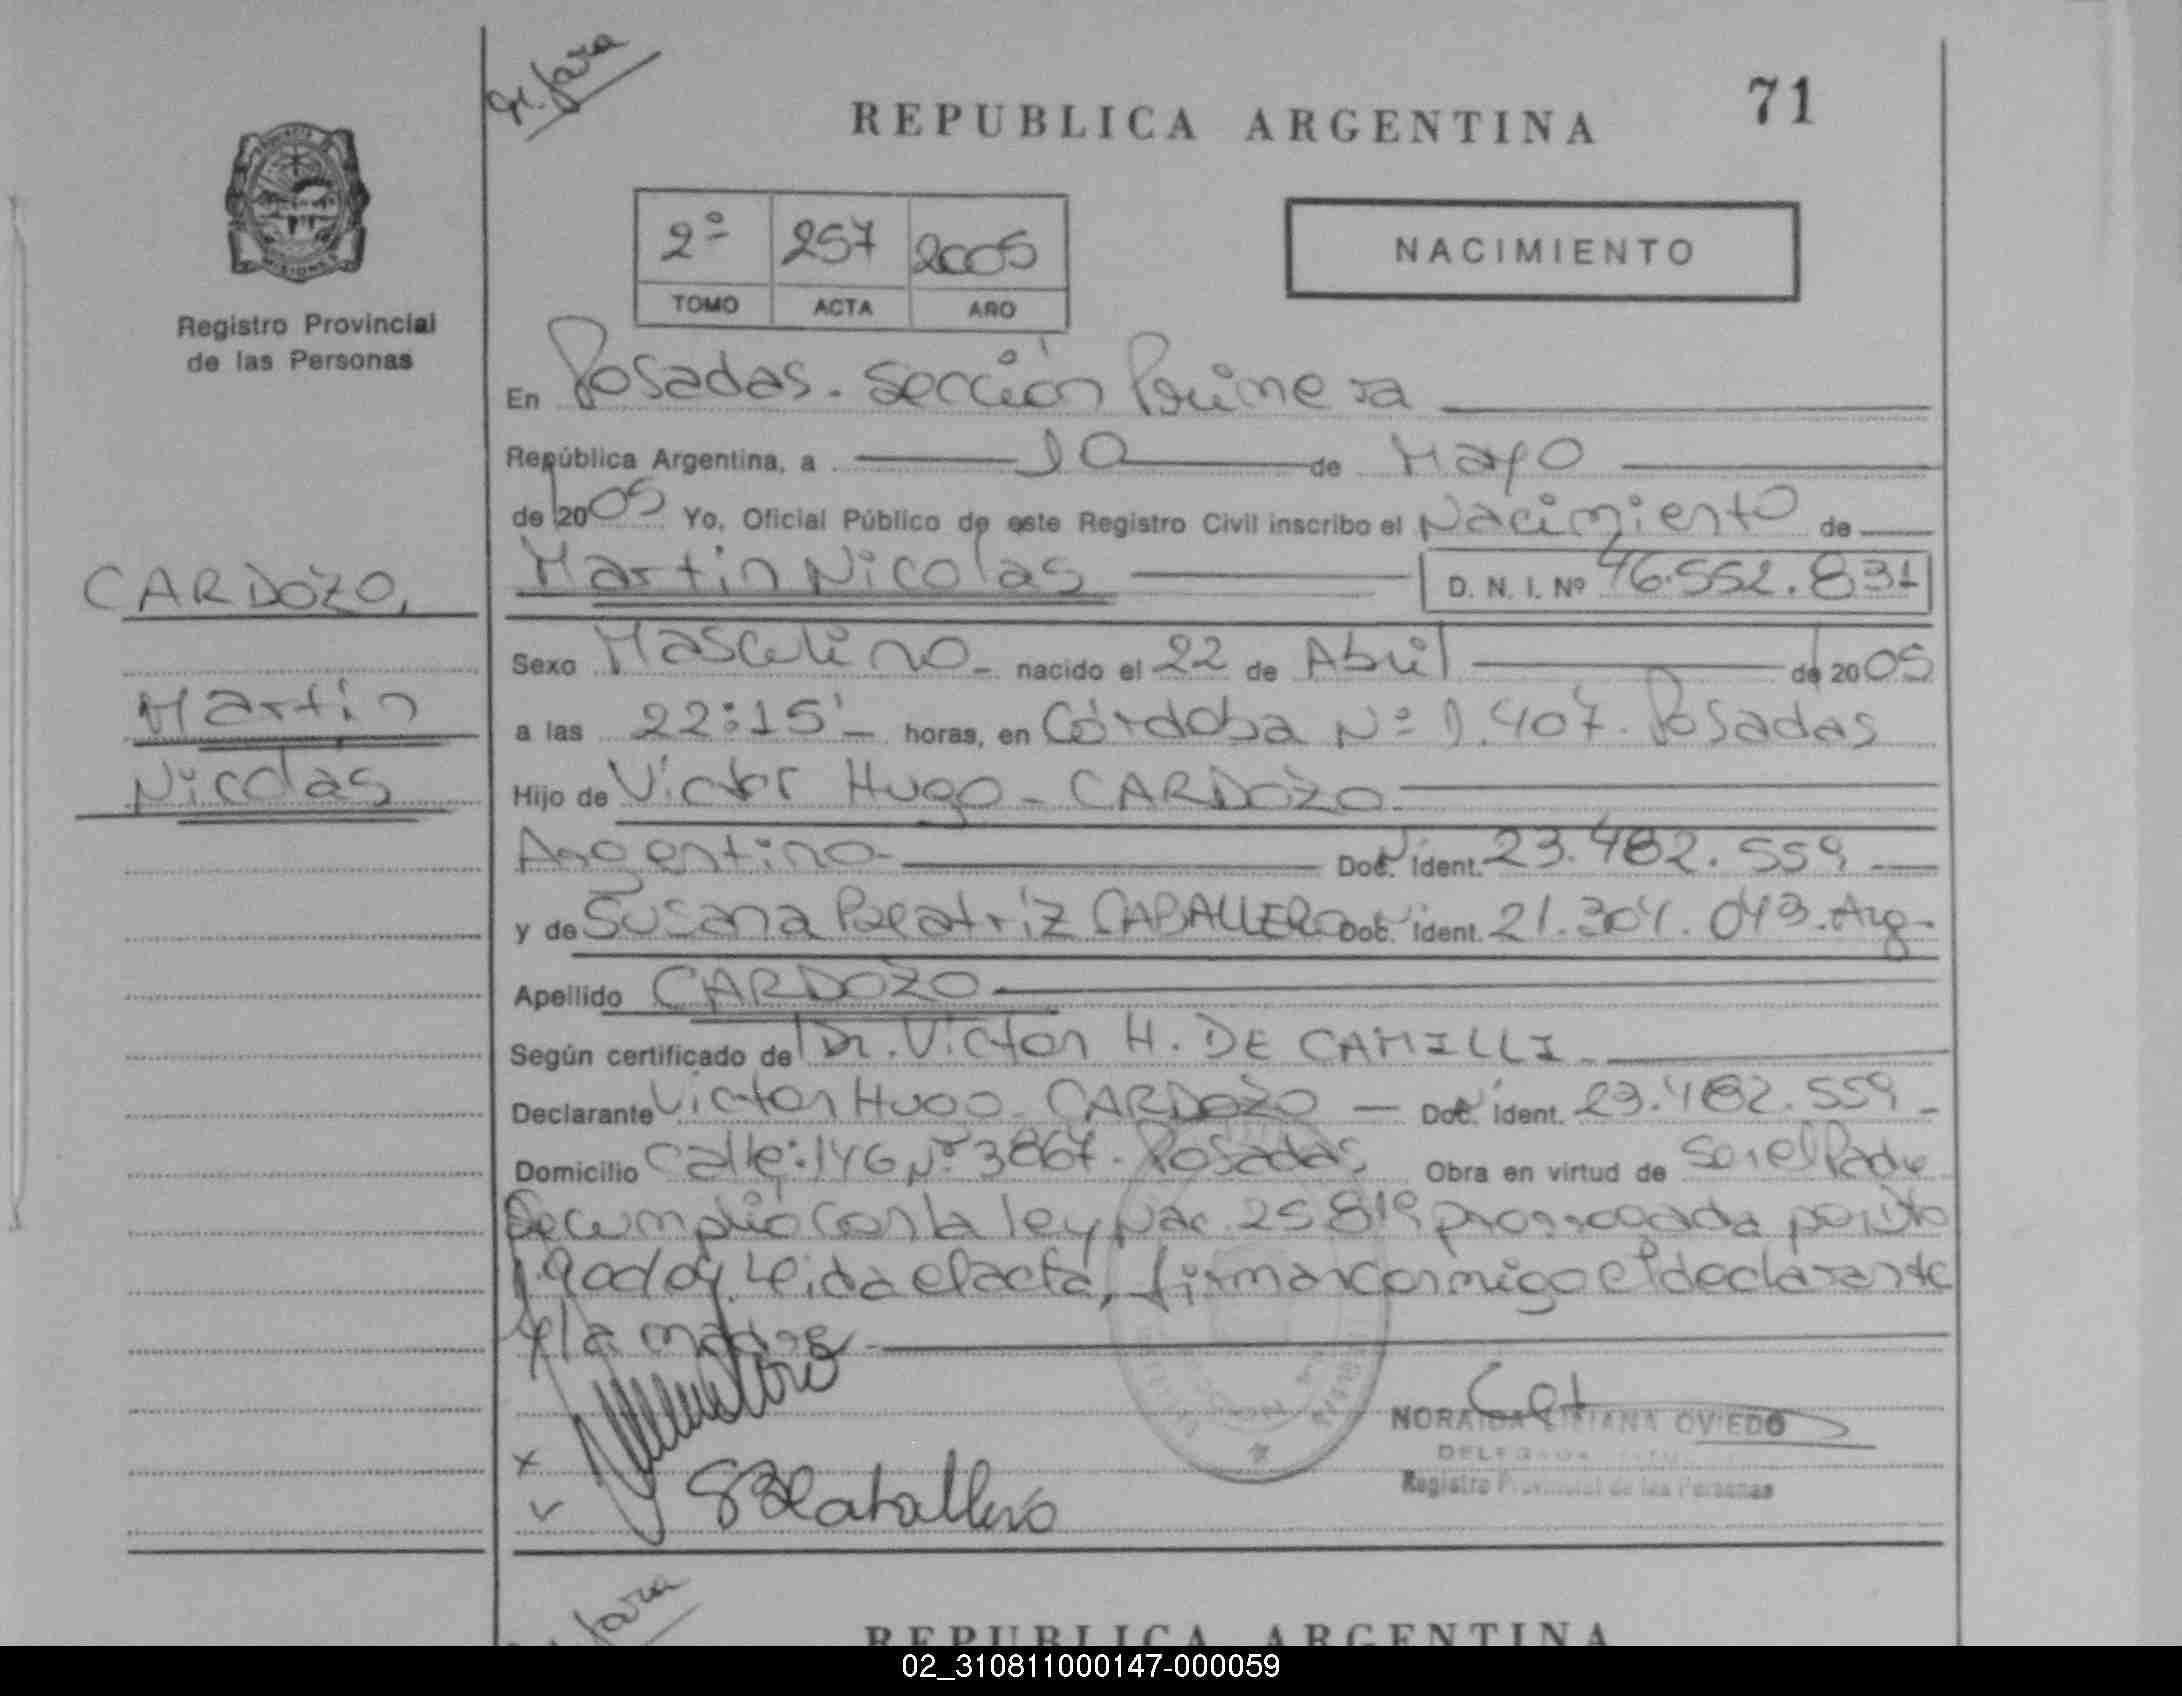 71
REPUBLICA ARGENTINA
NACIMIENTO
2º 257 2005
TOMO ACTA AÑO
Registro Provincial
de las Personas
MISIONES
CARDOZO,
Martin
Nicolas
En Posadas. Sección Primera
República Argentina, a 10 de Mayo
de 2005 Yo, Oficial Público de este Registro Civil inscribo el Nacimiento de
Martin Nicolas D. N. I. Nº 46.552.831
Sexo Masculino - nacido el 22 de Abril de 2005
a las 22:15' - horas, en Córdoba Nº 1.407. Posadas
Hijo de Victor Hugo - CARDOZO
Argentino - Doc. Ident. 23.482.559
y de Susana Beatriz CABALLERO Doc. Ident. 21.304.043. Arg.
Apellido CARDOZO
Según certificado de Dr. Victor H. DE CAMILLI
Declarante Victor Hugo CARDOZO - Doc. Ident. 23.482.559 -
Domicilio Calle: 146 Nº 3867. Posadas Obra en virtud de Ser el Padre
Se cumplió con la ley Nac. 25819 prorrogada por Dto
Leida el acta, firman conmigo el declarante
y la madre
SBCaballero
NORAIDA LILIANA OVIEDO
DELEGADA
Registro Provincial de las Personas
REPUBLICA ARGENTINA
02_310811000147-000059